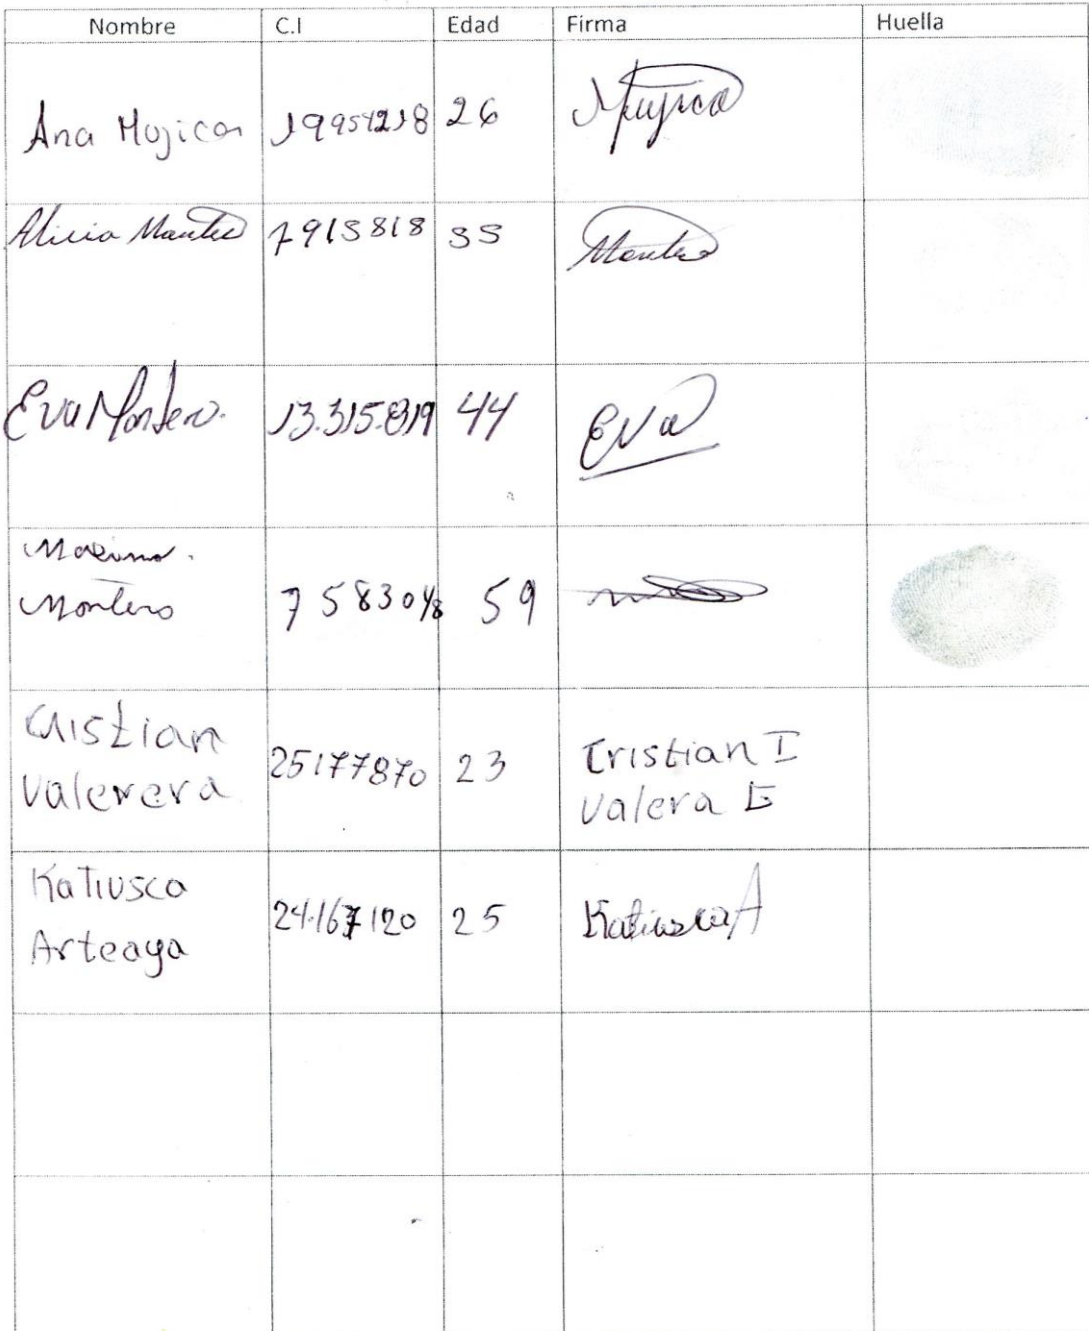 Nombre C.I Edad Firma Huella
Ana Mujica 19954218 26 Mujica
Alicia Montero 7915818 55 Montero
Eva Montero. 13.315.819 44 Eva
Montero 7583048 59
Cristian
Valerera 25177870 23 Cristian I
Valera E
Katiusca
Arteaga 24.167120 25 Katiusca A